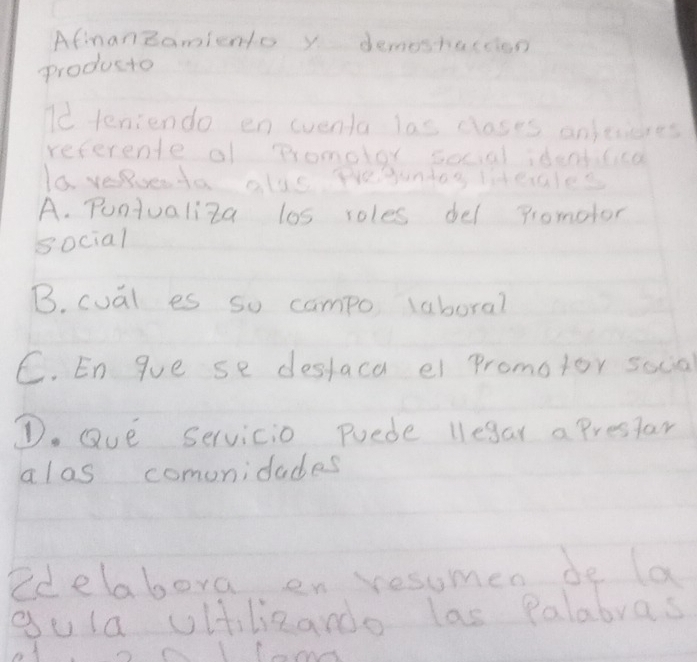 Afinanzamiento y demostraccion
producto
1d teniendo en cuenta las clases anteriores
referente al Promotor social identifica
la alas Preguntas literales
A. Puntualiza los roles del Promotor
social
B. cuál es su campo laboral
C. En que se destaca el Promotor social
D. Qué servicio Puede llegar a Prestar
alas comunidades
2d elabora en resumen de la
guia Ultilizando las Palabras